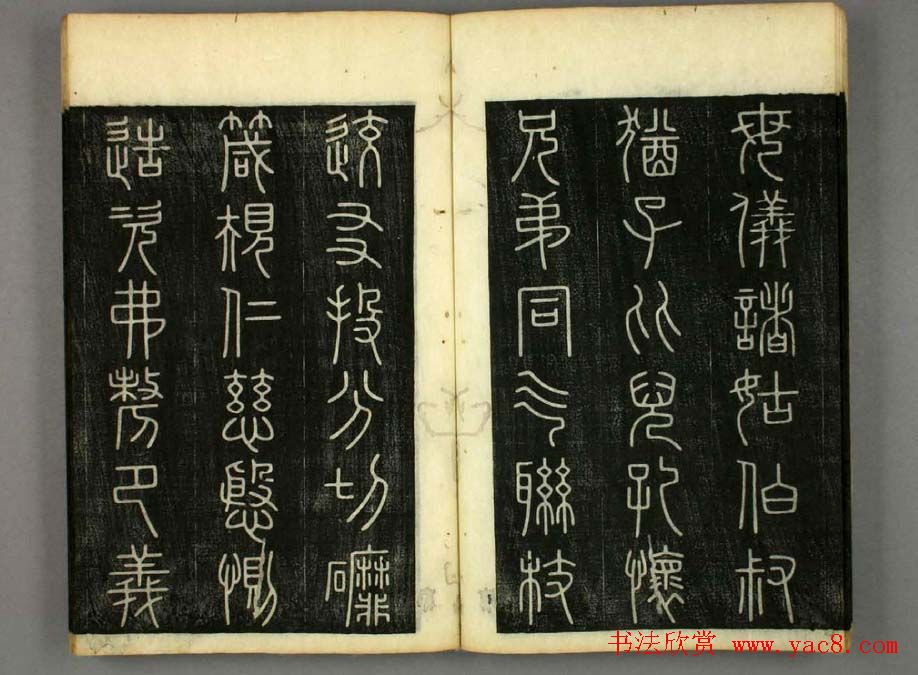 母儀諸姑伯叔
猶子比兒孔懷
兄弟同气聯枝
迒友投分切䃺
箴規仁慈慇惻
造次弗𠩺卪義
书法欣赏 www.yac8.com